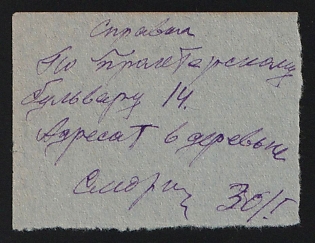 Справка
По Пролетарскому
бульвару 14.
Адресат в деревне
30/I